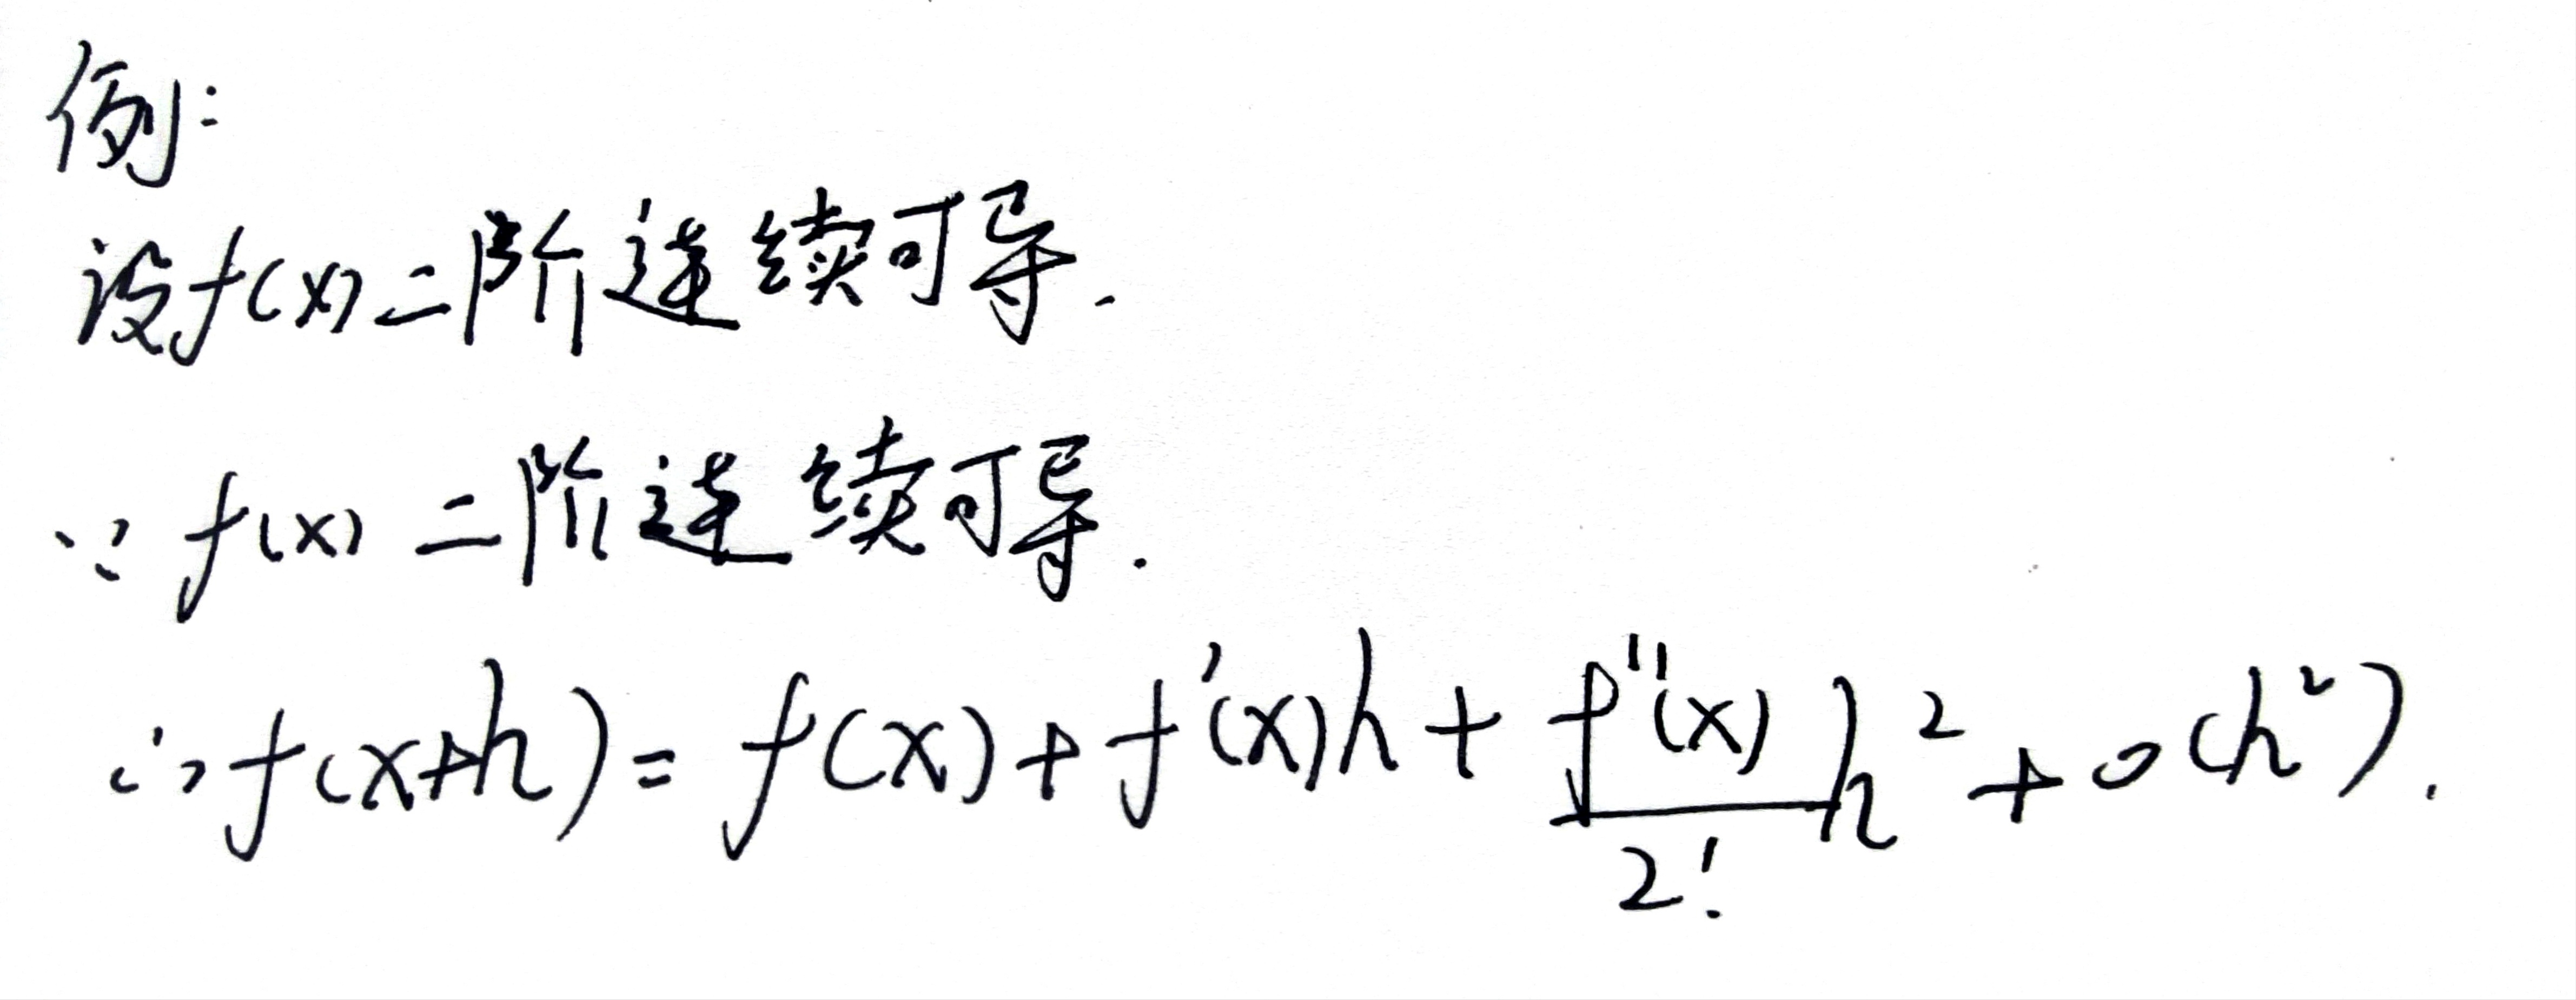 例:
设f(x)二阶连续可导.
∵ f(x) 二阶连续可导.
∴ f(x+h) = f(x) + f'(x)h + \frac{f''(x)}{2!}h² + o(h²).